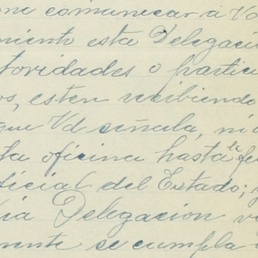 me comunicar á Vd
miento esta Delegació
toridades o particu
os, esten recibiendo
que Vd señala, ni
ta oficina hasta la fe
icial del Estado; y
ia Delegacion v
mente se cumpla